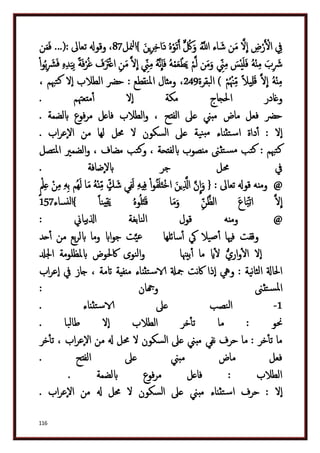 فِي الْأَرْضِ إِلَّا مَن شَاء اللَّهُ وَكُلٌّ أَتَوْهُ دَاخِرِينَ }النمل87، وقوله تعالى :(... فَمَن
شَرِبَ مِنْهُ فَلَيْسَ مِنِّي وَمَن لَّمْ يَطْعَمْهُ فَإِنَّهُ مِنِّي إِلاَّ مَنِ اغْتَرَفَ غُرْفَةً بِيَدِهِ فَشَرِبُواْ
مِنْهُ إِلاَّ قَلِيلاً مِّنْهُمْ ) البقرة249، ومثال المنقطع : حضر الطلاب إلا كتبهم ،
وغادر الحجاج مكة إلا أمتعتهم .
حضر فعل ماض مبني على الفتح ، والطلاب فاعل مرفوع بالضمة .
إلا : أداة استثناء مبنية على السكون لا محل لها من الإعراب .
كتبهم : كتب مستثنى منصوب بالفتحة ، وكتب مضاف ، والضمير المتصل
في محل جر بالإضافة .
@ ومنه قوله تعالى : { وَإِنَّ الَّذِينَ اخْتَلَفُواْ فِيهِ لَفِي شَكٍّ مِّنْهُ مَا لَهُم بِهِ مِنْ عِلْمٍ
إِلاَّ اتِّبَاعَ الظَّنِّ وَمَا قَتَلُوهُ يَقِيناً }النساء157
@ ومنه قول النابغة الذبياني :
وقفت فيها أصيلا كي أسائلها عيّت جوابا وما بالربع من أحد
إلا الأواريُّ لأيا ما أبينها والنوى كالحوض بالمظلومة الجلد
الحالة الثانية : وهي إذا كانت جملة الاستثناء منفية تامة ، جاز في إعراب
المستثنى وجهان :
1- النصب على الاستثناء .
نحو : ما تأخر الطلاب إلا طالبا .
ما تأخر : ما حرف نفي مبني على السكون لا محل له من الإعراب ، تأخر
فعل ماض مبني على الفتح .
الطلاب : فاعل مرفوع بالضمة .
إلا : حرف استثناء مبني على السكون لا محل له من الإعراب .
116